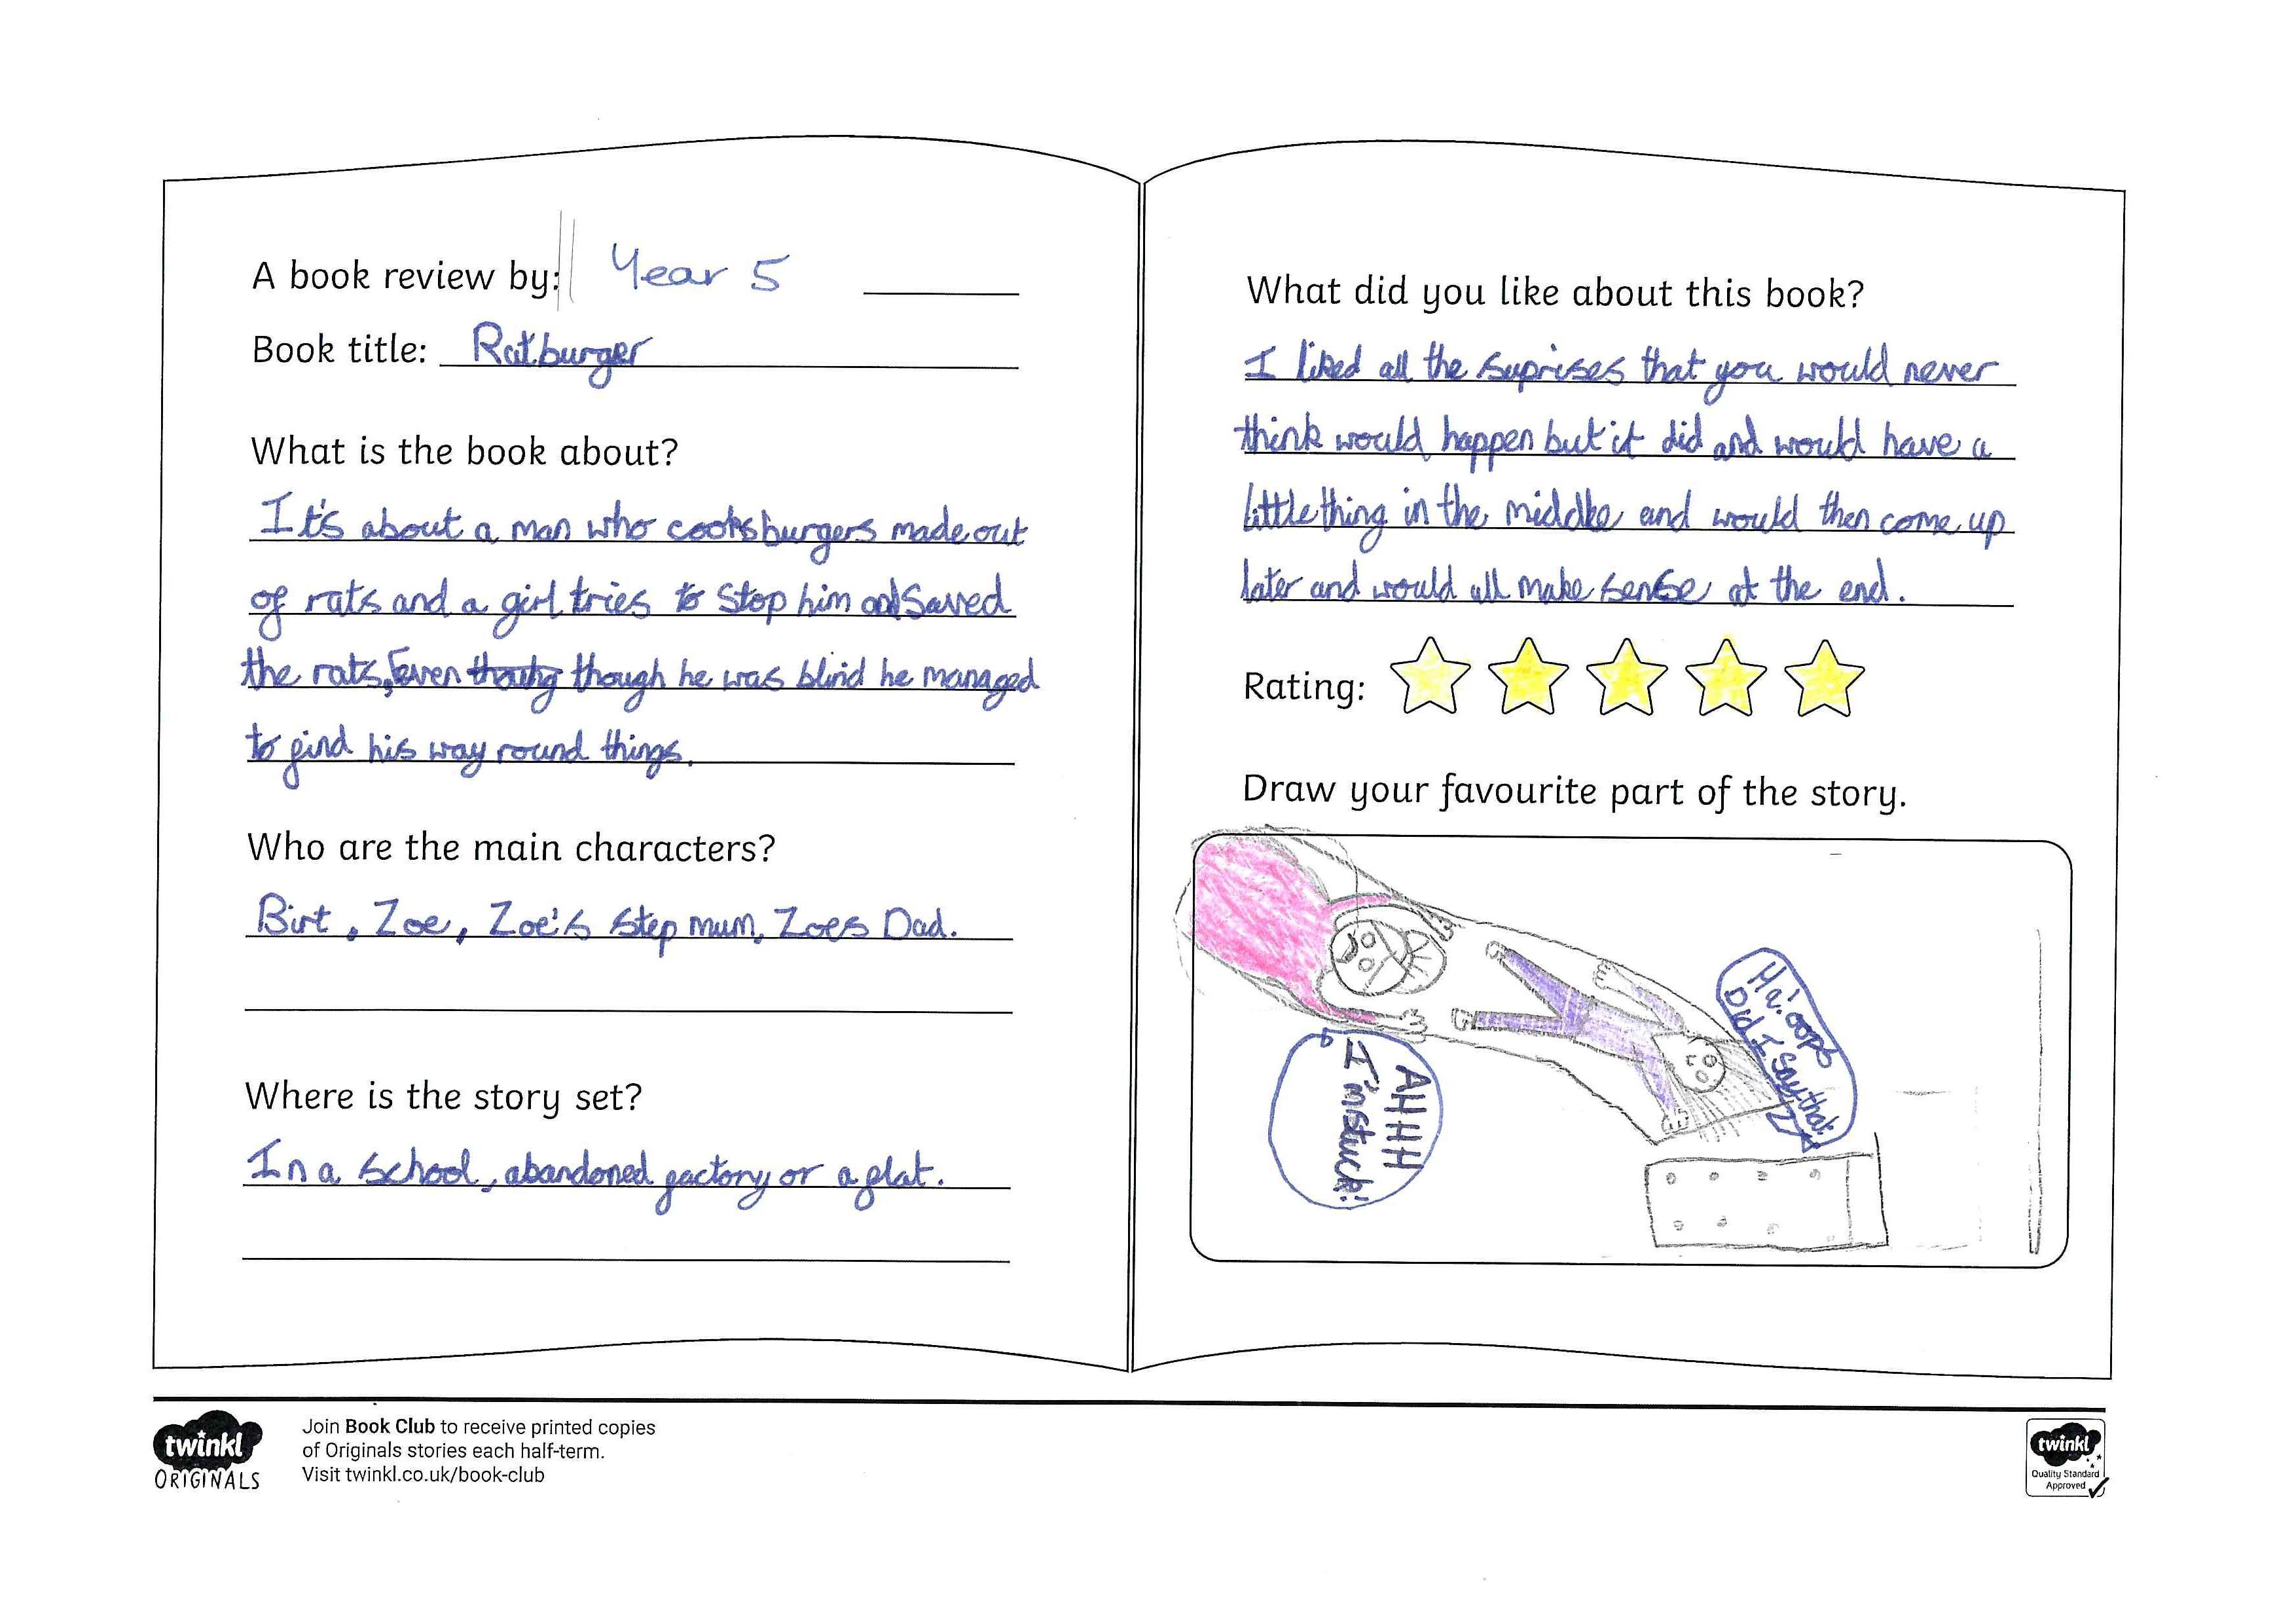 A book review by: Year 5
Book title: Ratburger
What is the book about?
It's about a man who cooks burgers made out
of rats and a girl tries to stop him and saved
the rats, Even though he was blind he managed
to find his way round things.
Who are the main characters?
Birt, Zoe, Zoe's step mum, Zoes Dad.
Where is the story set?
In a school, abandoned factory or a flat.
What did you like about this book?
I liked all the suprises that you would never
think would happen but it did and would have a
little thing in the middle and would then come up
later and would all make sense at the end.
Rating:
Draw your favourite part of the story.
Ha! oops
Did I say that.
AHHHH
I'm stuck!
twinkl
ORIGINALS
Join Book Club to receive printed copies
of Originals stories each half-term.
Visit twinkl.co.uk/book-club
twinkl
Quality Standard
Approved